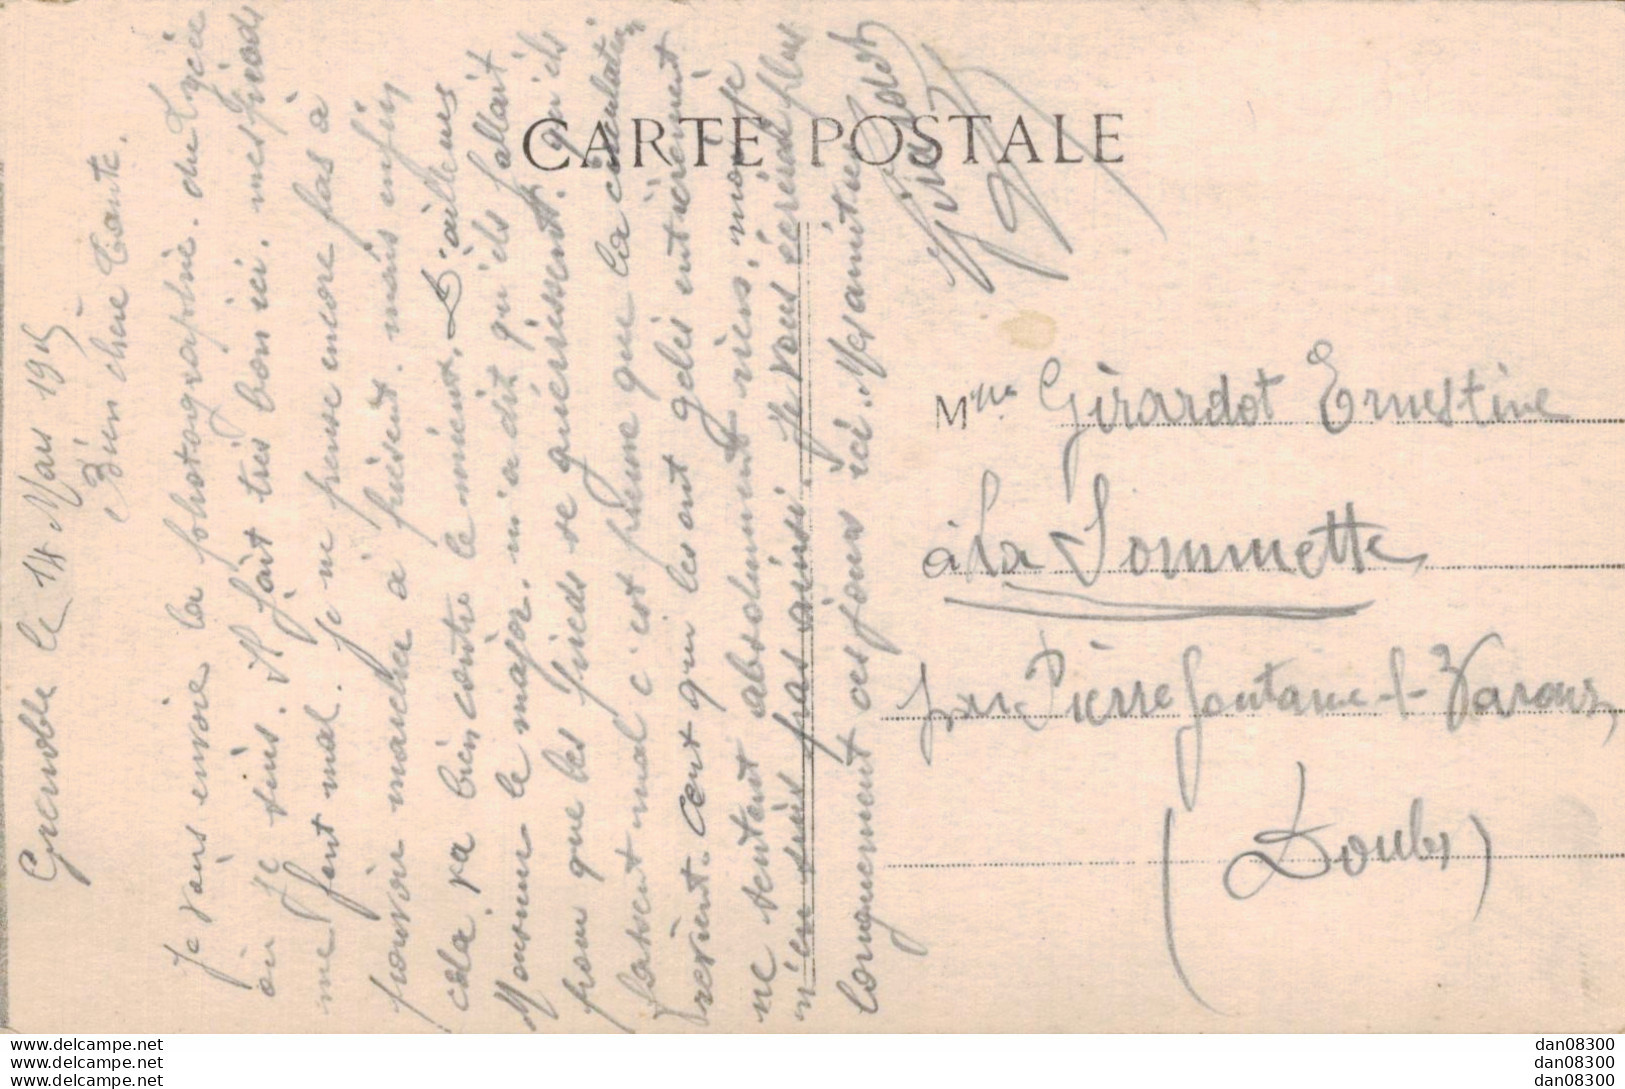 CARTE POSTALE
Grenoble le 14 Mars 1915
Bien chère tante.
Je vais envoie la photographie. du Lycée
où je suis. Il fait très bon ici. mes pieds
me font mal. je ne pense encore pas à
pouvoir marcher à présent. mais enfin
cela va bien contre le mieux. D'ailleurs
Monsieur le major. m'a dit qu'ils fallait
pour que les pieds se guérissent. qu'ils
fassent mal c'est preuve que la circulation
revient. Cent qui les ont gelés entièrement
ne sentent absolument rien. moi je
m'en suis pas ainsi. Je vous écrirai plus
longuement ces jours ici. Mes amitiés
Girardot
Mlle Girardot Ernestine
à la Sommette
par Pierrefontaine-l-Varans
(Doubs)
dan08300
dan08300
dan08300